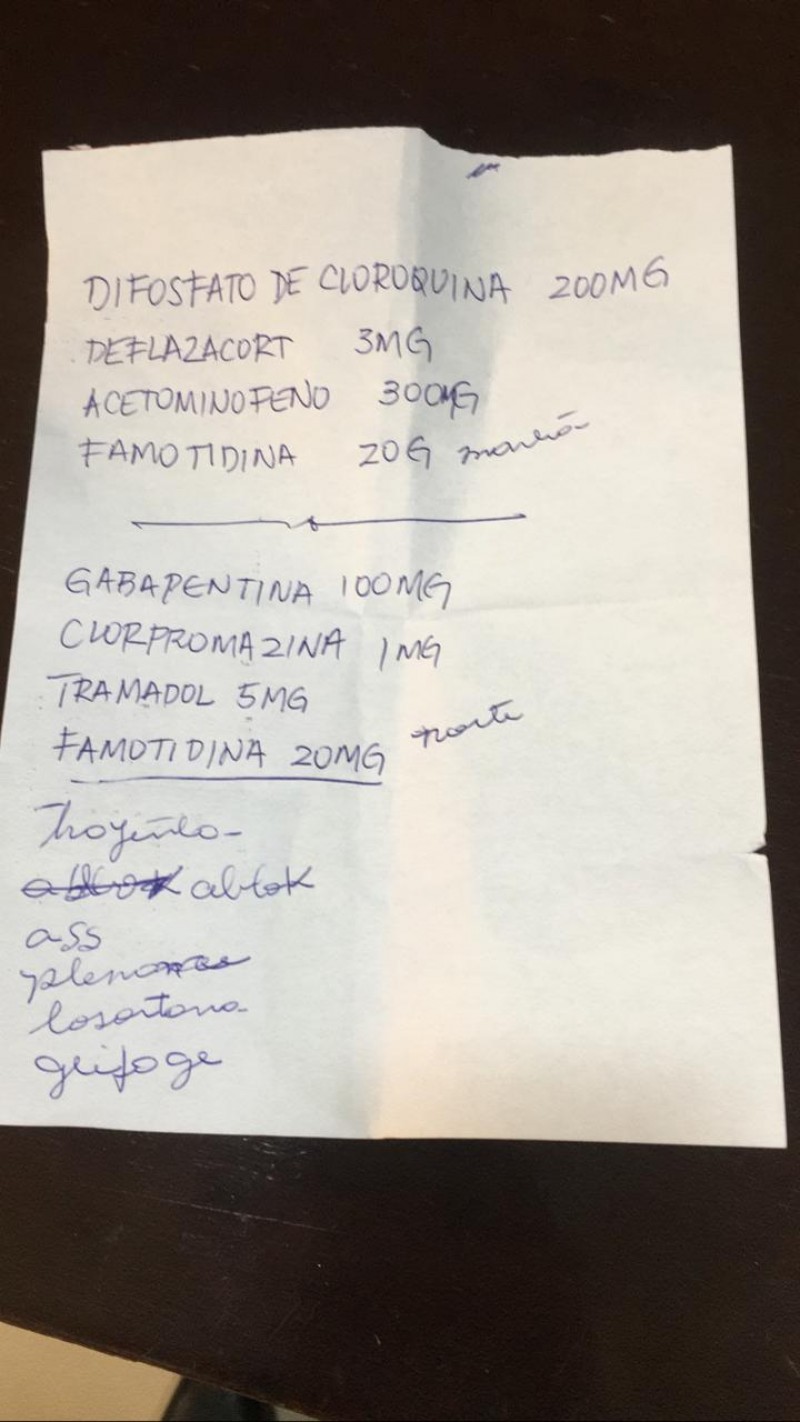 DIFOSFATO DE CLOROQUINA 200MG
DEFLAZACORT 3MG
ACETOMINOFENO 300MG
FAMOTIDINA 20G
GABAPENTINA 100MG
CLORPROMAZINA 1MG
TRAMADOL 5MG
FAMOTIDINA 20MG noite
ablok
ass
losartana
glifage